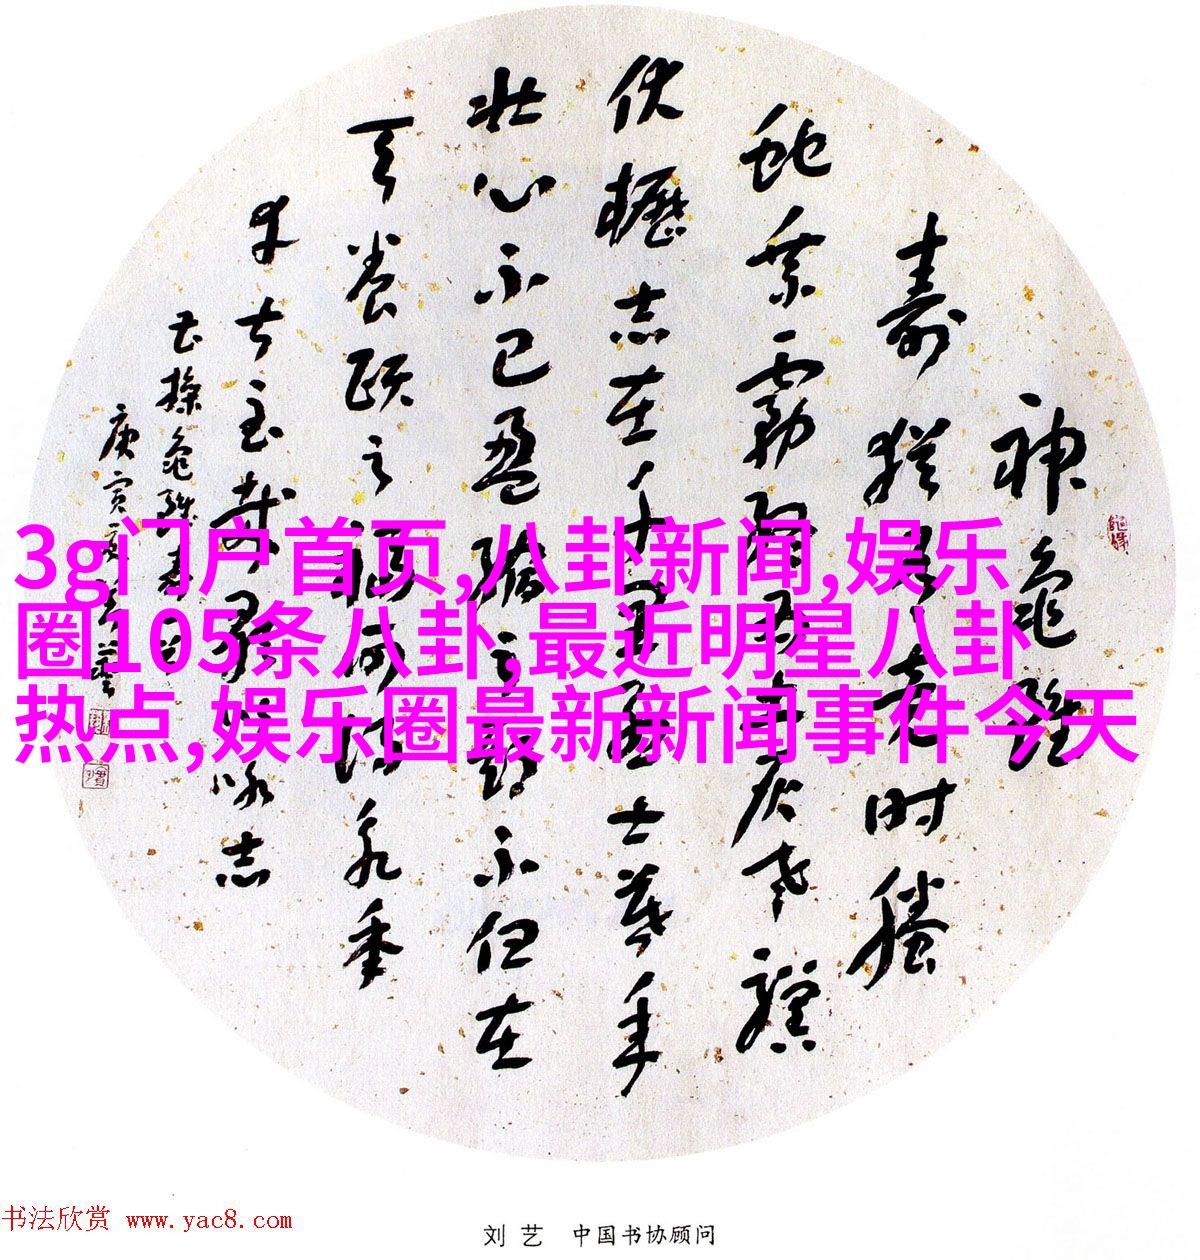 神龟雖
壽猶有竟时騰
蛇乘霧終为土灰老驥
伏櫪志在千里烈士暮年
壮心不已盈縮之期不但在
天養頤之福可得永年
幸甚至哉歌以咏志
曹操龟雖寿
庚寅夏刘藝
3g门户首页,八卦新闻,娱乐
圈105条八卦,最近明星八卦
热点,娱乐圈最新新闻事件今天
书法欣赏 www.yac8.com
刘艺 中国书协顾问